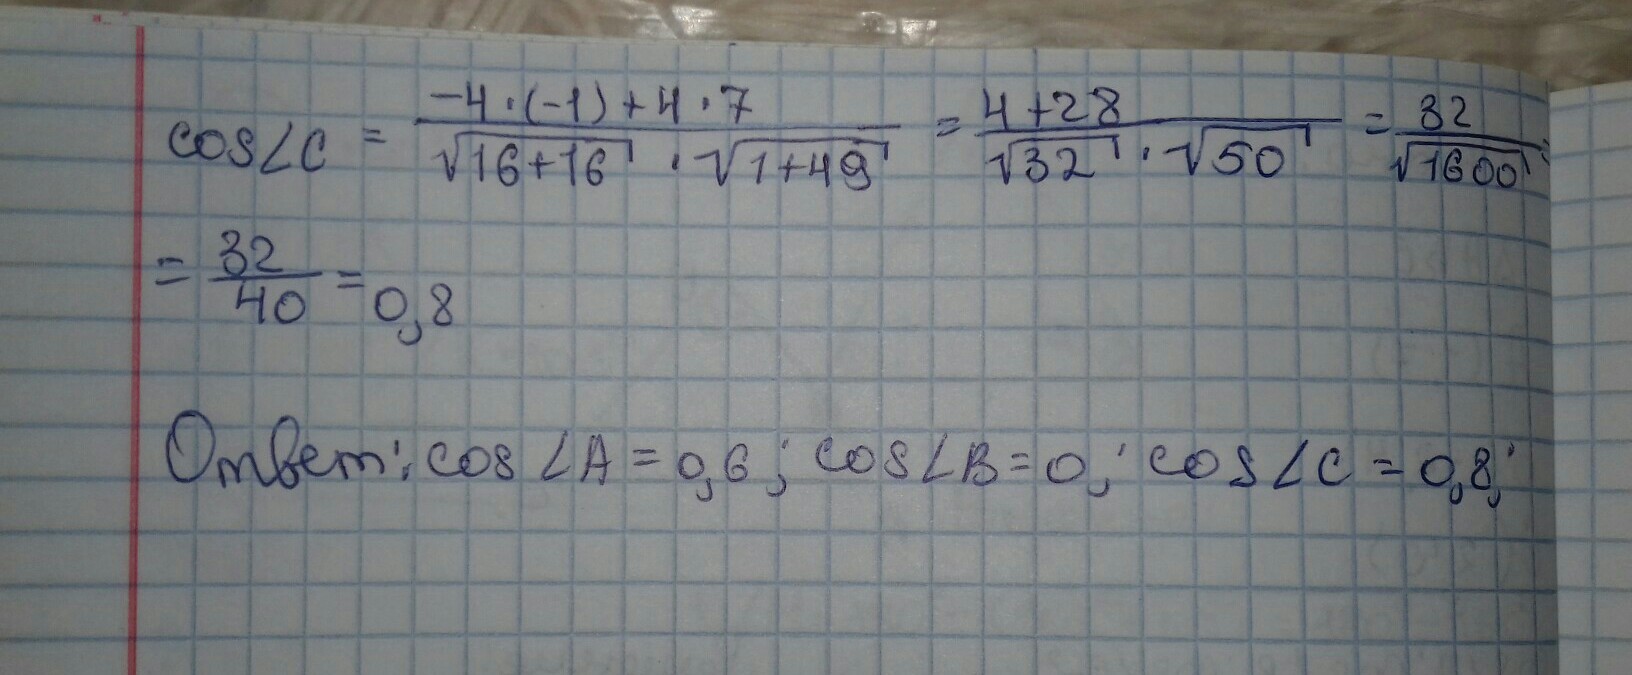 cos∠C = (-4·(-1)+4·7)/(√16+16 · √1+49) = (4+28)/(√32 · √50) = 32/√1600 =
= 32/40 = 0,8
Ответ: cos∠A = 0,6; cos∠B = 0; cos∠C = 0,8;